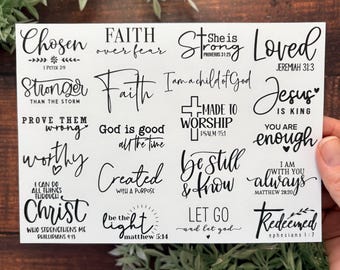 Chosen
1 PETER 2:9
FAITH
over fear
She is
Strong
PROVERBS 31:25
Loved
JEREMIAH 31:3
Stronger
THAN THE STORM
Faith
I am a child of God
Jesus
IS KING
PROVE THEM
wrong
God is good
all the time
MADE TO
WORSHIP
PSALM 75:1
YOU ARE
enough
worthy
Created
WITH A PURPOSE
Be still
& know
I AM
WITH YOU
always
MATTHEW 28:20
I CAN DO
ALL THINGS
THROUGH
Christ
WHO STRENGTHENS ME
PHILIPPIANS 4:13
be the
light
matthew 5:14
LET GO
and let god
Redeemed
ephesians 1:7